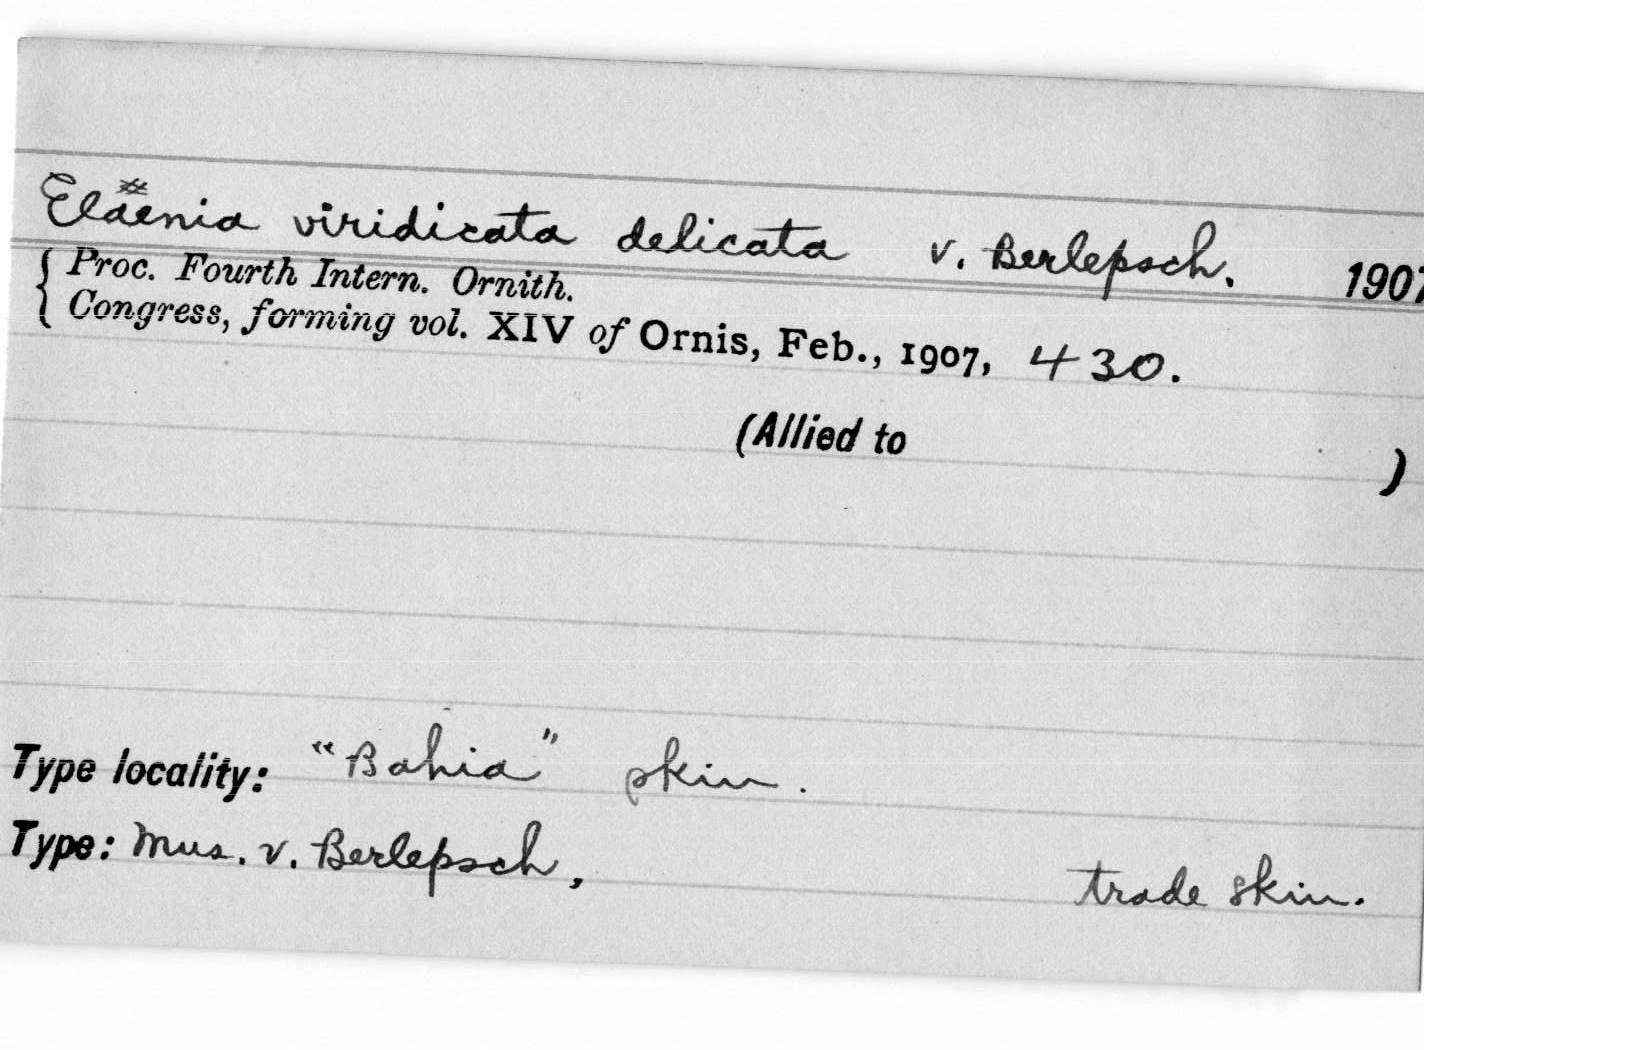 Elaenia viridicata delicata v. Berlepsch. 1907
Proc. Fourth Intern. Ornith.
Congress, forming vol. XIV of Ornis, Feb., 1907, 430.
(Allied to )
Type locality: "Bahia" skin.
Type: Mus. v. Berlepsch, trade skin.